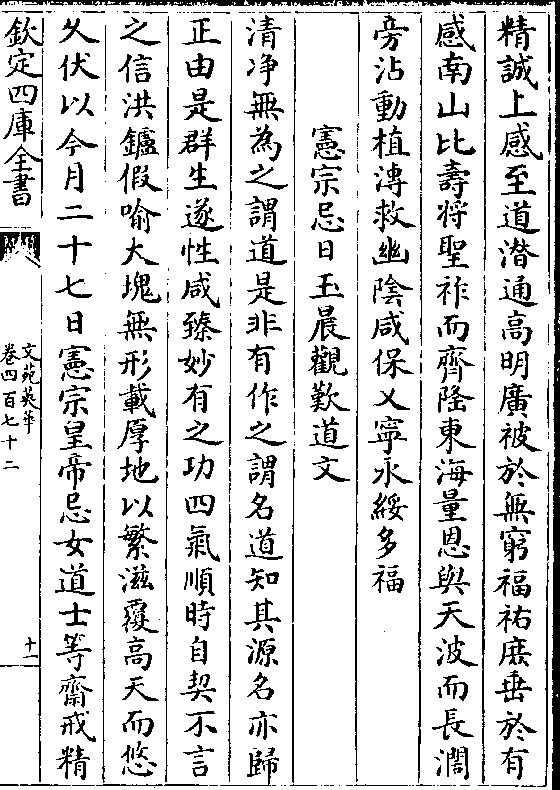 精誠上感至道潛通高明廣被於無窮福祐庶垂於有
感南山比壽將聖祚而齊隆東海量恩與天波而長濶
旁沾動植溥救幽陰咸保乂寧永綏多福
憲宗忌日玉晨觀歎道文
清净無為之謂道是非有作之謂名道知其源名亦歸
正由是群生遂性咸臻妙有之功四氣順時自契不言
之信洪鑪假喻大塊無形載厚地以繁滋覆高天而悠
久伏以今月二十七日憲宗皇帝忌女道士等齋戒精
欽定四庫全書
文苑英華
卷四百七十二
十一